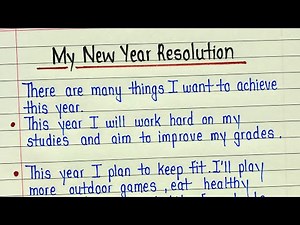 My New Year Resolution
There are many things I want to achieve
this year.
• This year I will work hard on my
studies and aim to improve my grades.
• This year I plan to keep fit. I'll play
more outdoor games, eat healthy